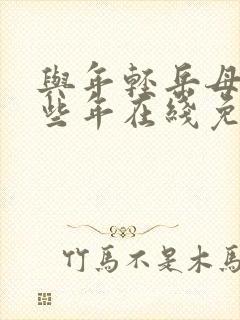 與年輕岳母
些年在綫免
竹馬不是木馬